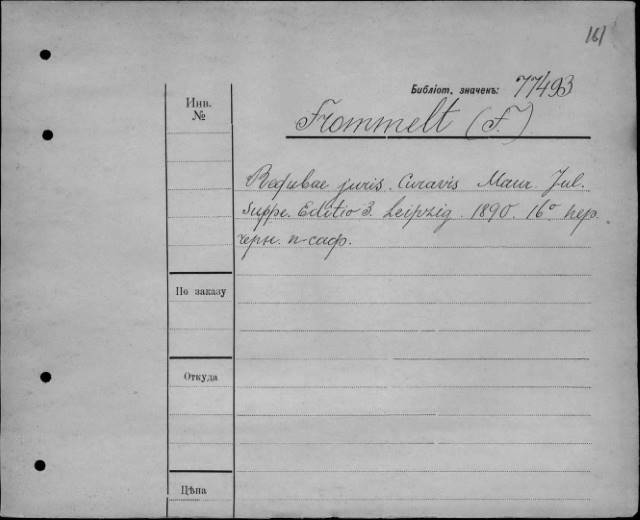 161
Библіот. значекъ: 77493
Инв.
№
Frommelt (F.)
juris. Curavis Maur. Jul.
Suppe. Editio 3. Leipzig. 1890. 16° пер.
черн. п-саф.
По заказу
Откуда
Цѣна